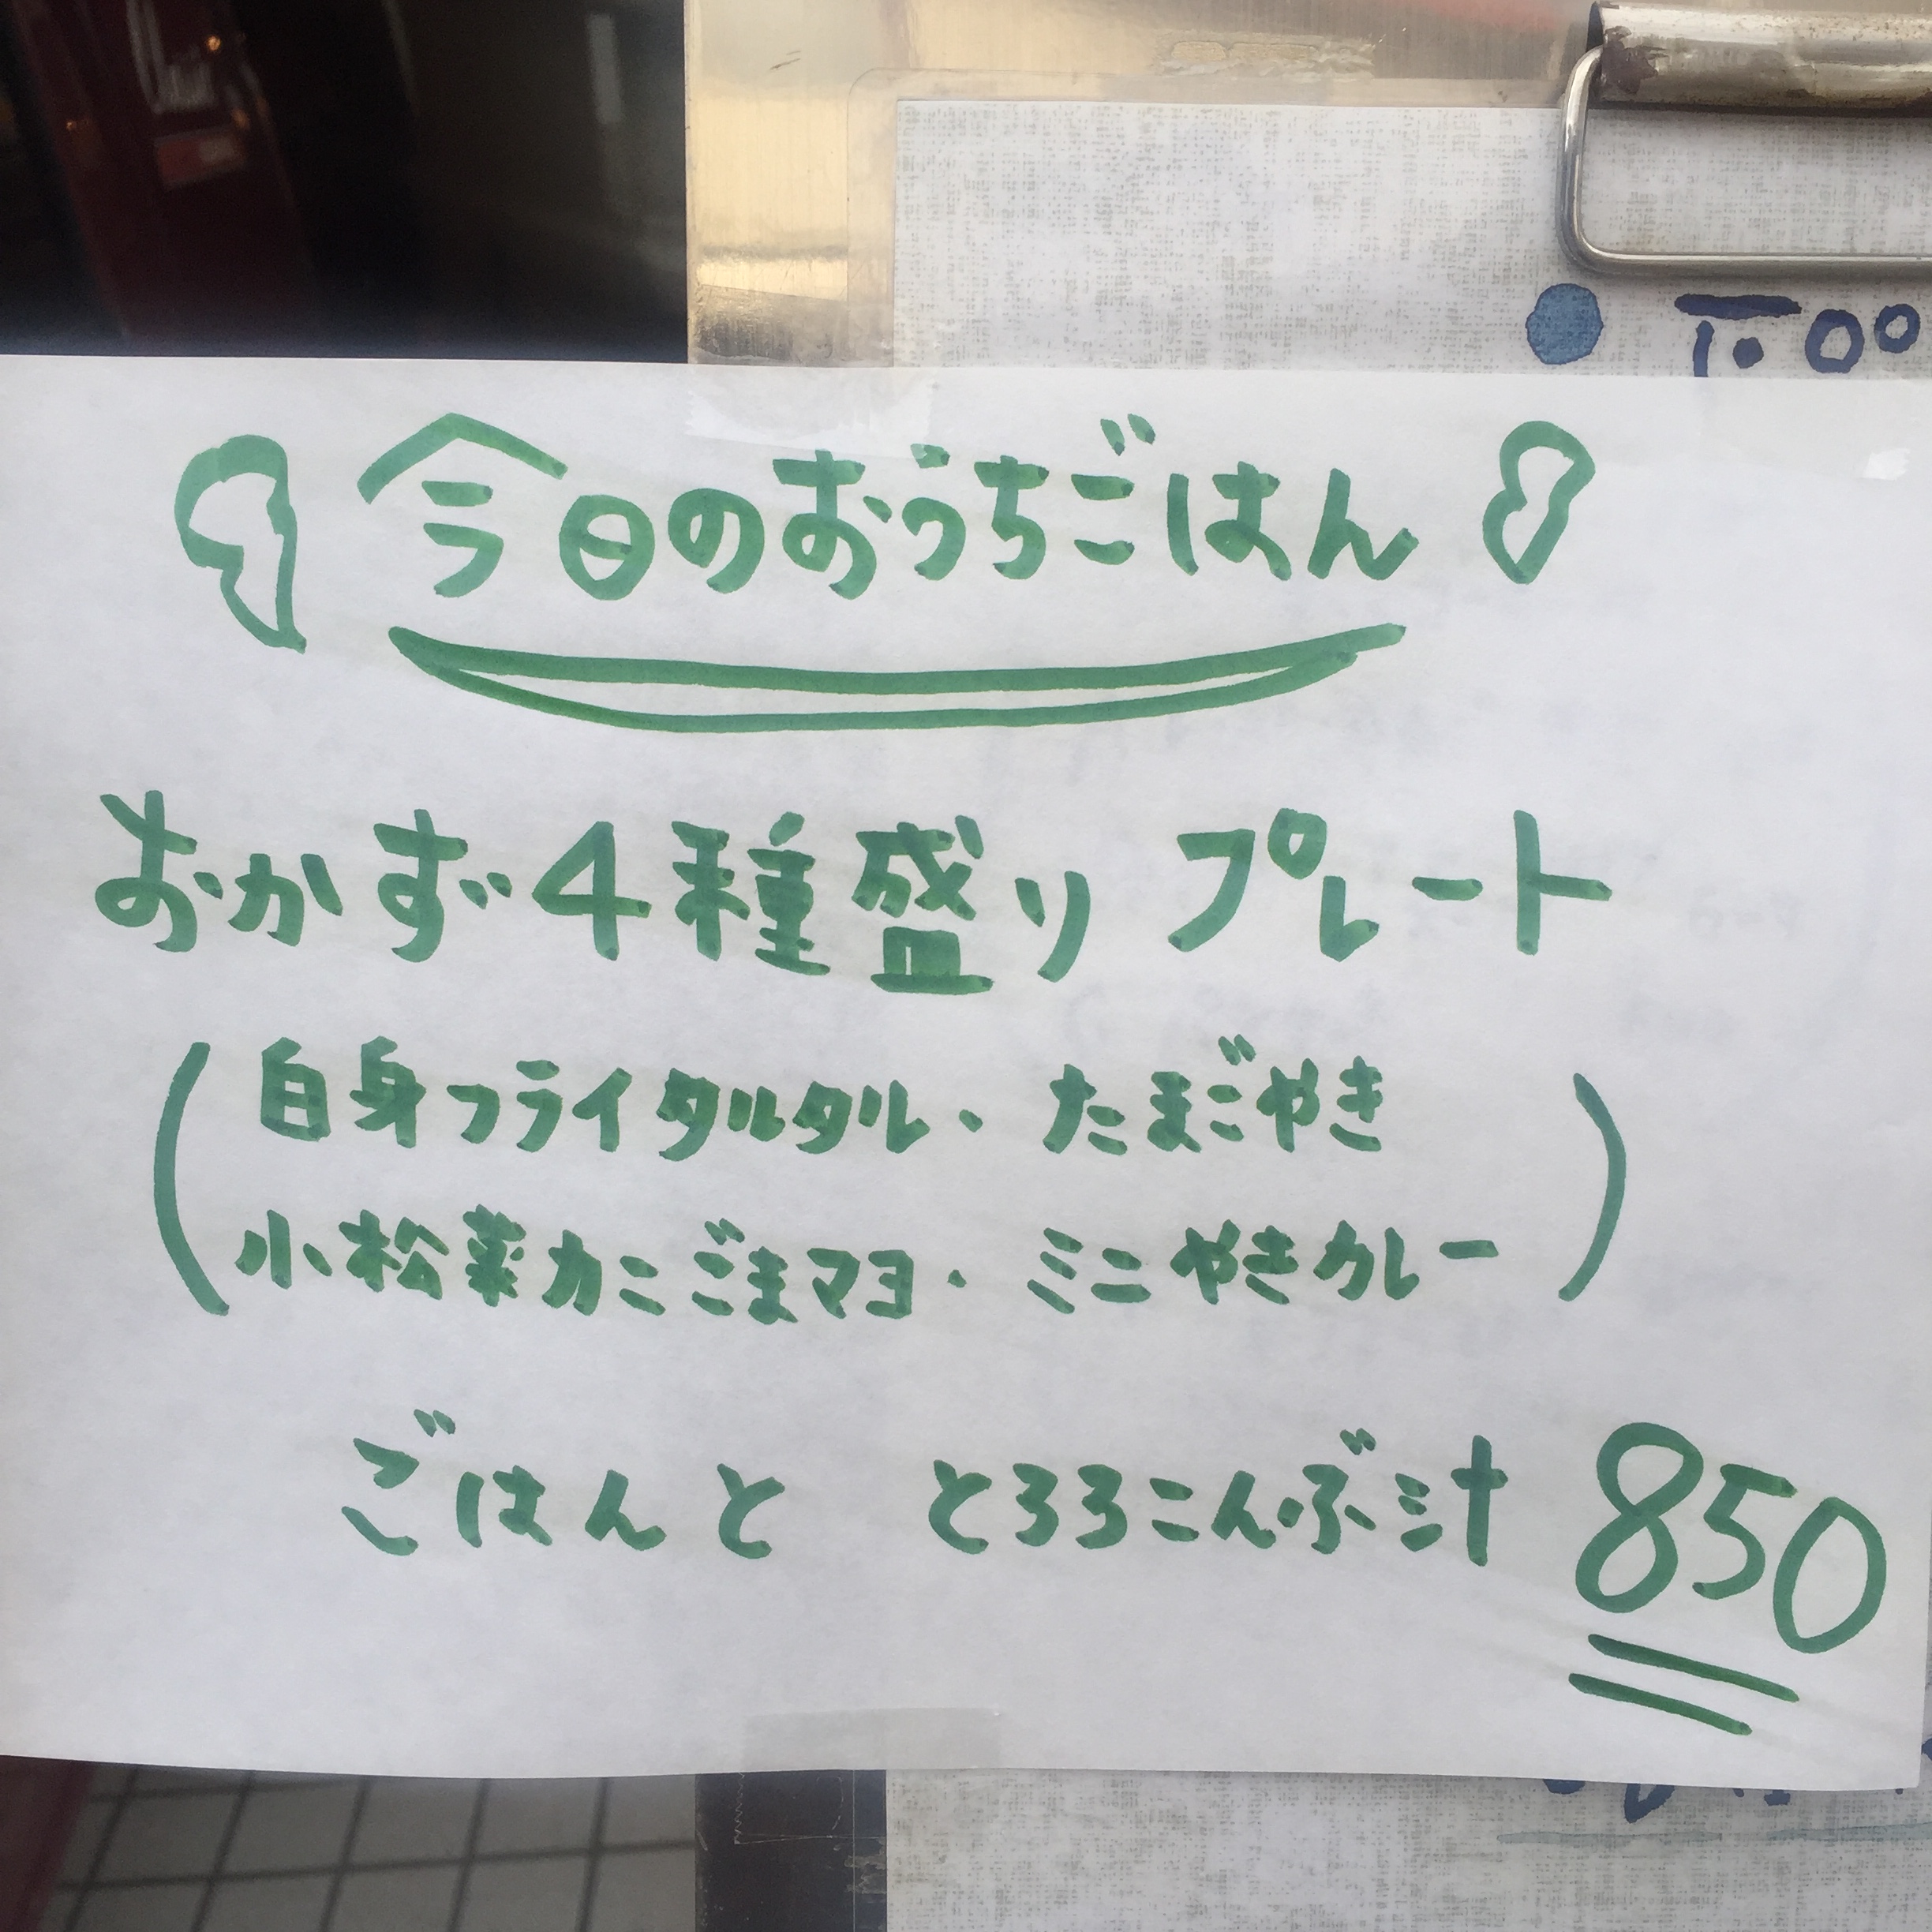 今日のおうちごはん
おかず4種盛り プレート
(白身フライタルタル・たまごやき
小松菜カニごまマヨ・ミニやきカレー)
ごはんと とろろこんぶ汁 850